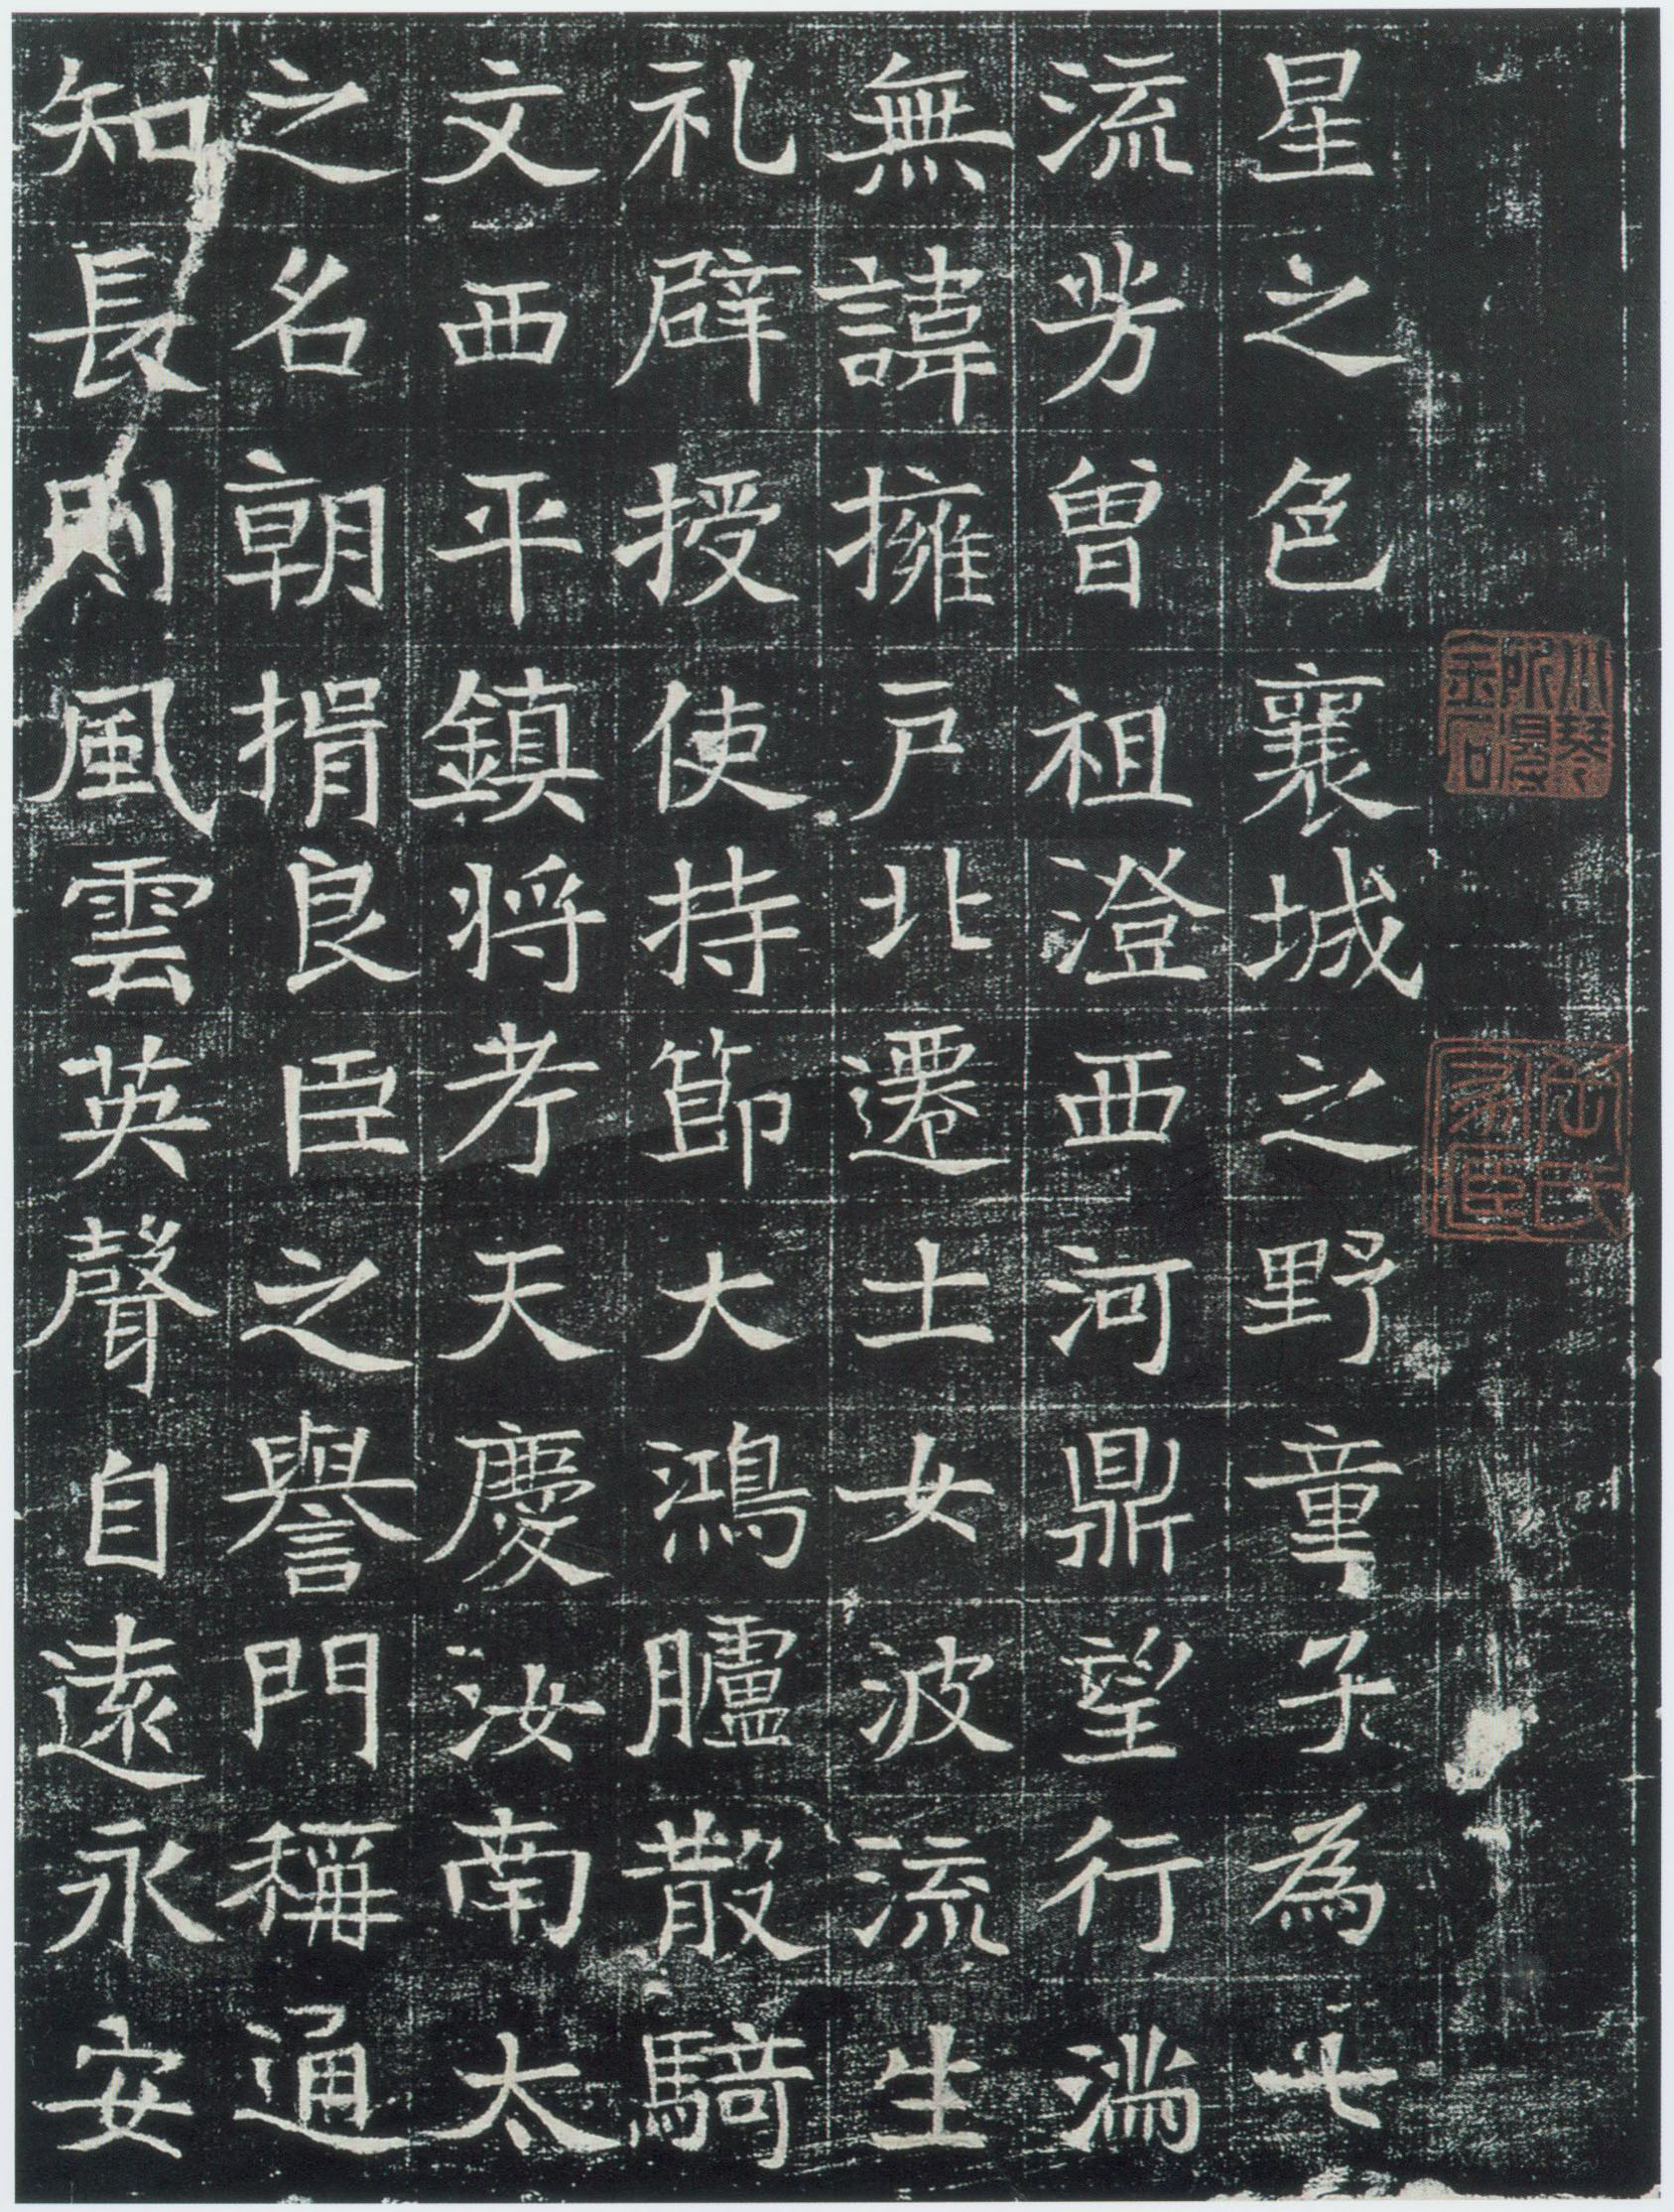 星之色襄城之野童子為七
流芳曾祖澄西河鼎望行滿
無諱擁戶北遷士女波流生
礼辟授使持節大鴻臚散騎
文西平鎮将考天慶汝南太
之名朝捐良臣之譽門稱通
知長則風雲英聲自遠永安